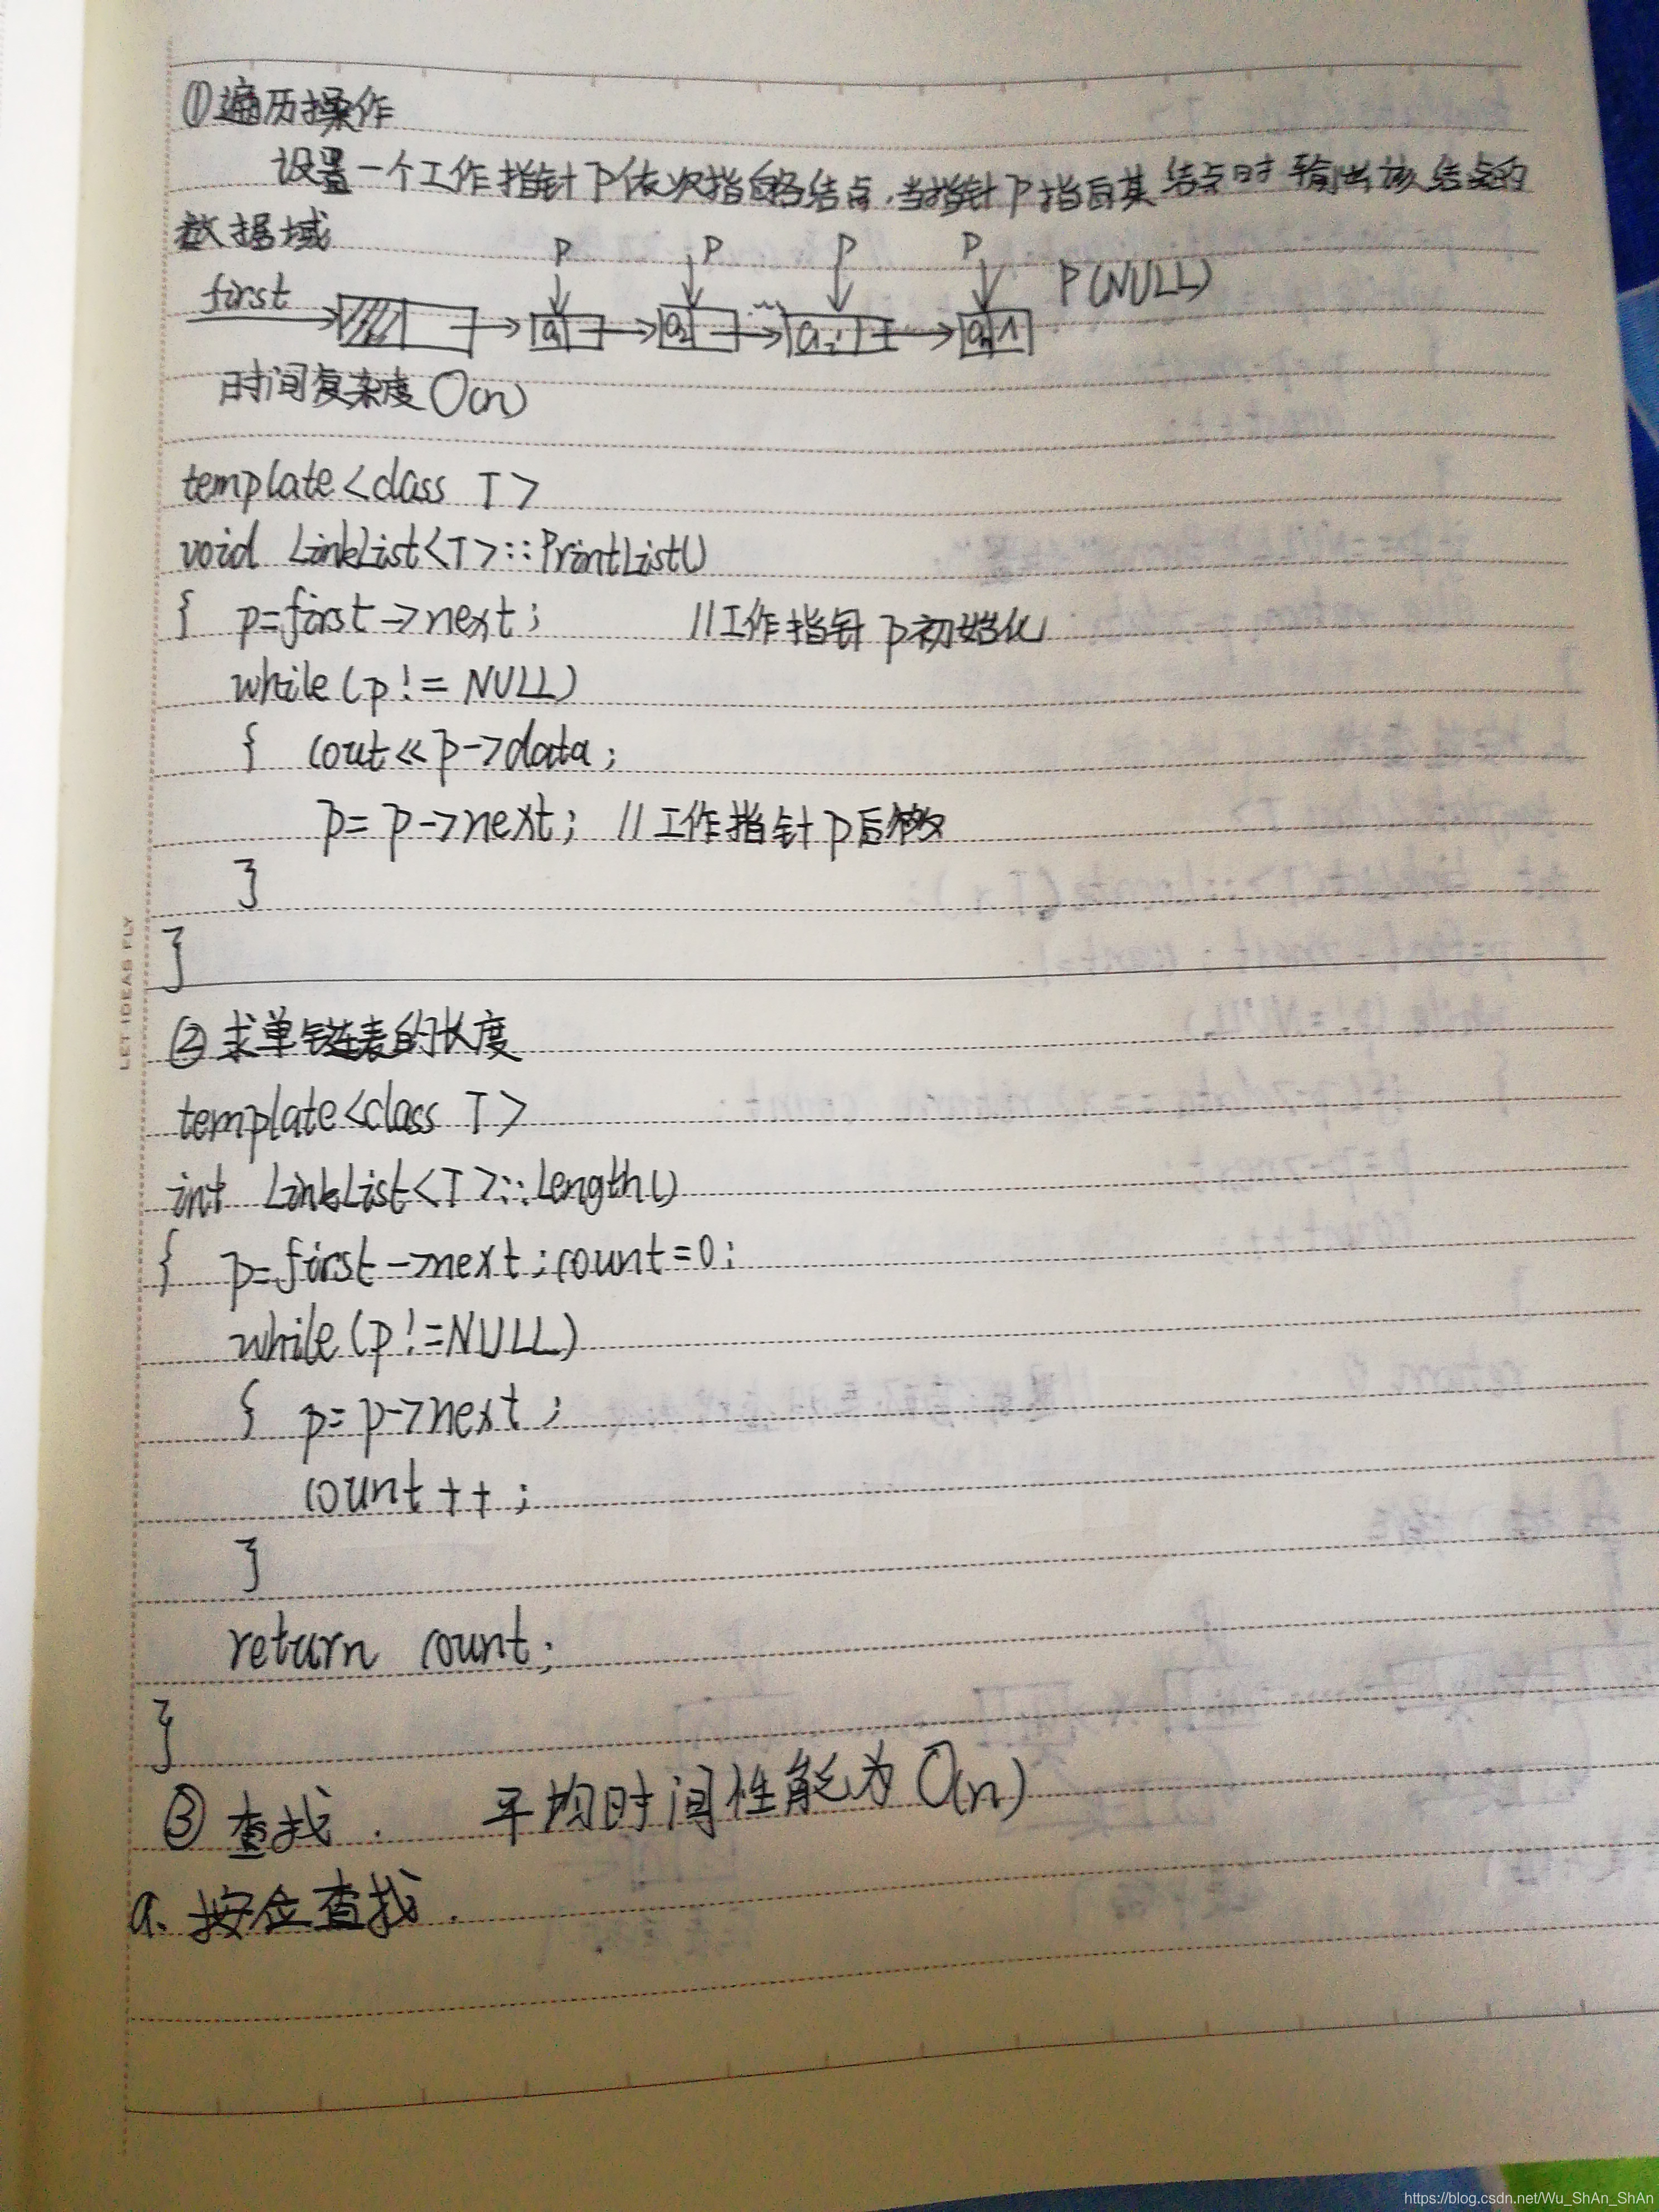 ①遍历操作
设置一个工作指针p依次指向各结点,当指针p指向某结点时输出该结点的
数据域
P P P P
first a1 a2 ai an ∧ P(NULL)
时间复杂度O(n)
template<class T>
void LinkList<T>::PrintList()
{ p=first->next; //工作指针p初始化
while(p!=NULL)
{ cout<<p->data;
p=p->next; //工作指针p后移
}
}
②求单链表的长度
template<class T>
int LinkList<T>::Length()
{ p=first->next;count=0;
while(p!=NULL)
{ p=p->next;
count++;
}
return count;
}
③查找. 平均时间性能为O(n)
a.按位查找.
LET IDEAS FLY
https://blog.csdn.net/Wu_ShAn_ShAn